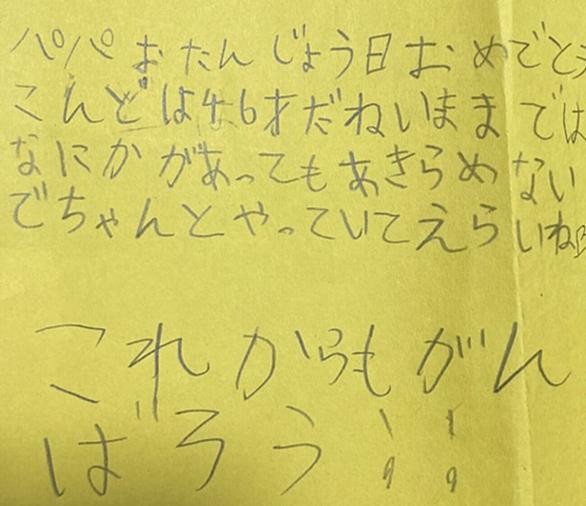 パパおたんじょう日おめでとう
こんどは46才だねいままでは
なにかがあってもあきらめない
でちゃんとやっていてえらいね
これからもがん
ばろう!!